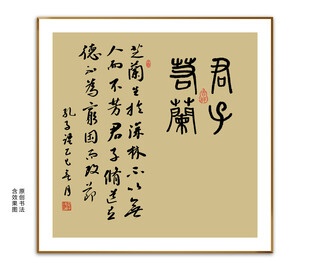 君子
若蘭
芝蘭生於深林不以無
人而不芳君子脩道立
德不為窮困而改節
孔子語乙巳年月
原创书法
含效果图